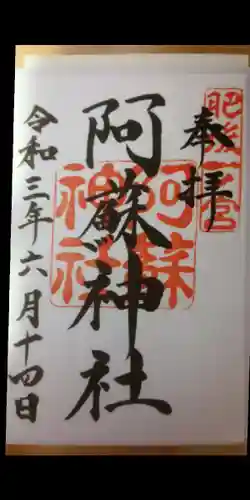 奉拝
肥後一之宮
阿蘇神社
阿蘇神社
令和三年六月十四日